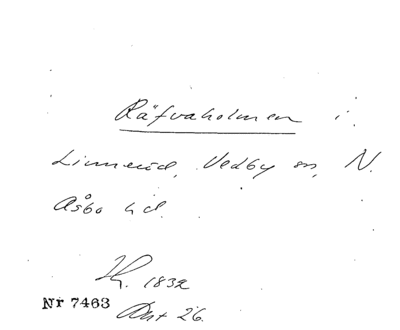 Räfvaholmen i
Linneröd, Vedby sn, N.
Åsbo hd.
1832
Nr 7463
26.